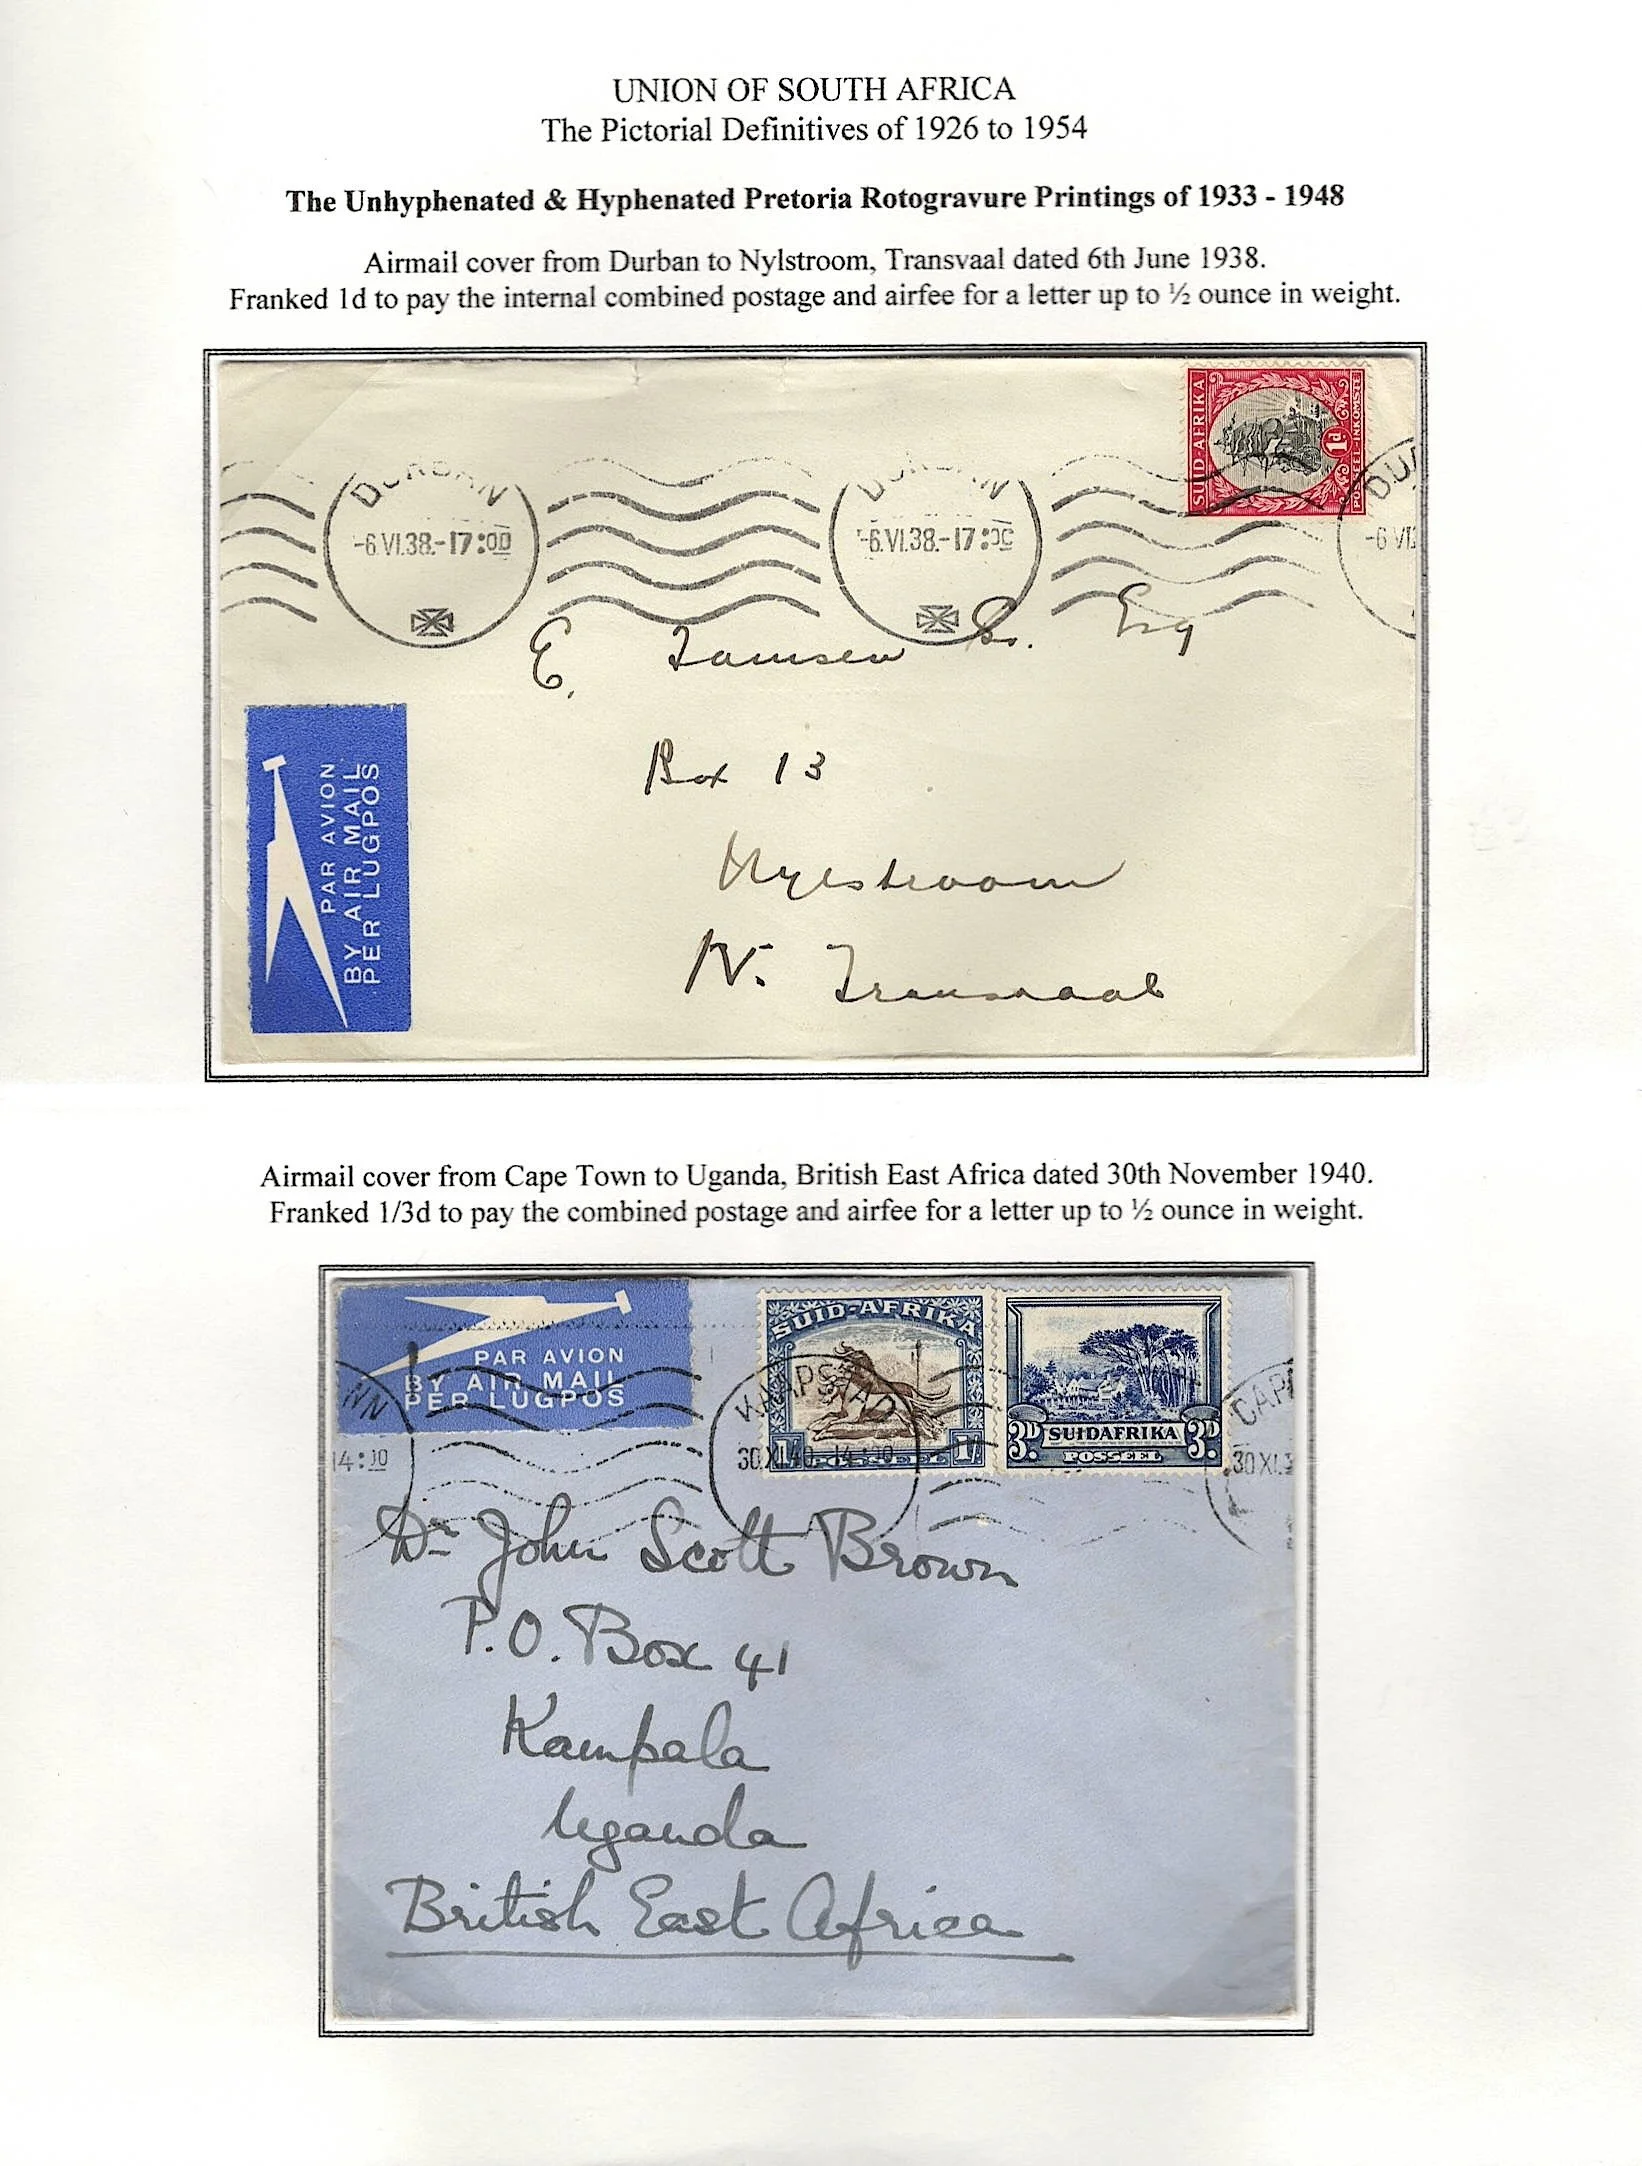 UNION OF SOUTH AFRICA
The Pictorial Definitives of 1926 to 1954
The Unhyphenated & Hyphenated Pretoria Rotogravure Printings of 1933 - 1948
Airmail cover from Durban to Nylstroom, Transvaal dated 6th June 1938.
Franked 1d to pay the internal combined postage and airfee for a letter up to ½ ounce in weight.
SUID-AFRIKA
1d
POSSEEL-INKOMSTE
DURBAN
-6.VI.38.-17:00
DURBAN
-6.VI.38.-17:00
DU
-6 VI
E. Tamsen Sr. Esq
Box 13
Nylstroom
N. Transvaal
PAR AVION
BY AIR MAIL
PER LUGPOS
Airmail cover from Cape Town to Uganda, British East Africa dated 30th November 1940.
Franked 1/3d to pay the combined postage and airfee for a letter up to ½ ounce in weight.
PAR AVION
BY AIR MAIL
PER LUGPOS
WN
14:00
SUID-AFRIKA
POSSEEL 1/-
KAAPSTAD
30.XI.40 14:00
3D. SUIDAFRIKA 3D.
POSSEEL
CAP
30 XI.
Dr John Scott Brown
P.O. Box 41
Kampala
Uganda
British East Africa